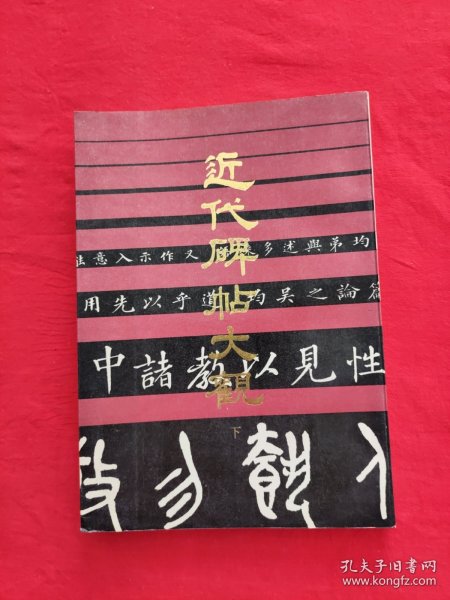 近代碑帖大觀
下
均弟與述多又作示入意
篇論之吳均道奇以先用
性見以教諸中
孔夫子旧书网
www.kongfz.com